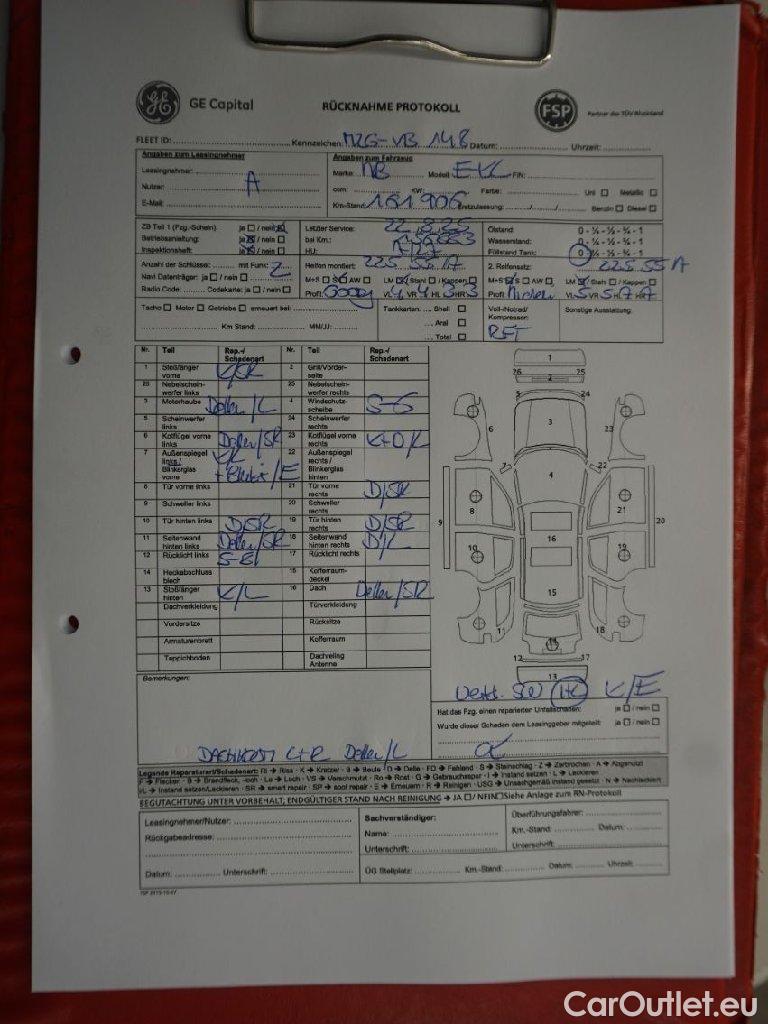 GE Capital
RÜCKNAHME PROTOKOLL
FSP
Partner des TÜV Rheinland
FLEET ID: Kennzeichen: Datum: Uhrzeit:
Angaben zum Leasingnehmer
Angaben zum Fahrzeug
Leasingnehmer:
Marke: Modell: FIN:
Nutzer: A
ccm: KW: Farbe: Uni Metallic
E-Mail:
Km-Stand: 161906 Erstzulassung: Benzin Diesel
ZB Teil 1 (Fzg.-Schein) ja / nein
Letzter Service:
Ölstand: 0 - ¼ - ½ - ¾ - 1
Betriebsanleitung: ja / nein
bei Km.:
Wasserstand: 0 - ¼ - ½ - ¾ - 1
Inspektionsheft: ja / nein
HU:
Füllstand Tank: 0 ¼ - ½ - ¾ - 1
Anzahl der Schlüssel: mit Funk: 2
Reifen montiert: 225 55 17
2. Reifensatz: 225 55 17
Navi Datenträger: ja / nein
M+S AW LM Stahl / Kappen
M+S AW LM Stahl / Kappen
Radio Code: Codekarte: ja / nein
Profil VL 4 VR 4 HL 3 HR 3
Profil VL 5 VR 5 HL 7 HR 7
Tacho Motor Getriebe erneuert bei:
Km Stand: MM/JJ:
Tankkarten: Shell
Aral
Total
Voll-/Notrad/ Kompressor: RFT
Sonstige Ausstattung:
Nr. Teil Rep.-/ Schadenart Nr. Teil Rep.-/ Schadenart
1 Stoßfänger vorne K/SR 2 Grill/Vorderseite
26 Nebelscheinwerfer links 25 Nebelscheinwerfer rechts
3 Motorhaube Dellen/L 4 Windschutzscheibe S-G
5 Scheinwerfer links 24 Scheinwerfer rechts
6 Kotflügel vorne links Dellen/SR 23 Kotflügel vorne rechts K+D/L
7 Außenspiegel links / Blinkerglas vorne K/L 22 Außenspiegel rechts / Blinkerglas hinten
8 Tür vorne links 21 Tür vorne rechts D/SR
9 Schweller links 20 Schweller rechts
10 Tür hinten links D/SR 19 Tür hinten rechts D/SR
11 Seitenwand hinten links Dellen/SR 18 Seitenwand hinten rechts D/L
12 Rücklicht links 17 Rücklicht rechts
14 Heckabschlussblech 15 Kofferraumdeckel
13 Stoßfänger hinten K/L 16 Dach Dellen/SR
Dachverkleidung Türverkleidung
Vordersitze Rücksitze
Armaturenbrett Kofferraum
Teppichboden Dachreling Antenne
1
26 2 25
5 24
3
6 23
7 22
4
8 21
9 20
16
10 19
15
11 18
14
12 17
13
Bemerkungen:
K/E
Hat das Fzg. einen reparierten Unfallschaden: ja / nein
Wurde dieser Schaden dem Leasinggeber mitgeteilt: ja / nein
L+R Dellen/L
Legende Reparaturart/Schadenart: RI → Riss - K → Kratzer - B → Beule - D → Delle - FD → Fehlend - S → Steinschlag - Z → Zerbrochen - A → Abgenutzt
F → Flecken - B → Brandfleck, -loch - Lo → Loch - VS → Verschmutzt - Ro → Rost - G → Gebrauchsspur - I → Instand setzen - L → Lackieren
I/L → Instand setzen/Lackieren - SR → smart repair - SP → spot repair - E → Erneuern - R → Reinigen - USG → Unsachgemäß instand gesetzt - N → Nachlackiert
BEGUTACHTUNG UNTER VORBEHALT, ENDGÜLTIGER STAND NACH REINIGUNG → JA / NEIN Siehe Anlage zum RN-Protokoll
Leasingnehmer/Nutzer:
Sachverständiger:
Überführungsfahrer:
Rückgabeadresse:
Name:
Km.-Stand: Datum:
Unterschrift:
Unterschrift:
Datum: Unterschrift:
ÜG Stellplatz: Km.-Stand: Datum: Uhrzeit:
CarOutlet.eu